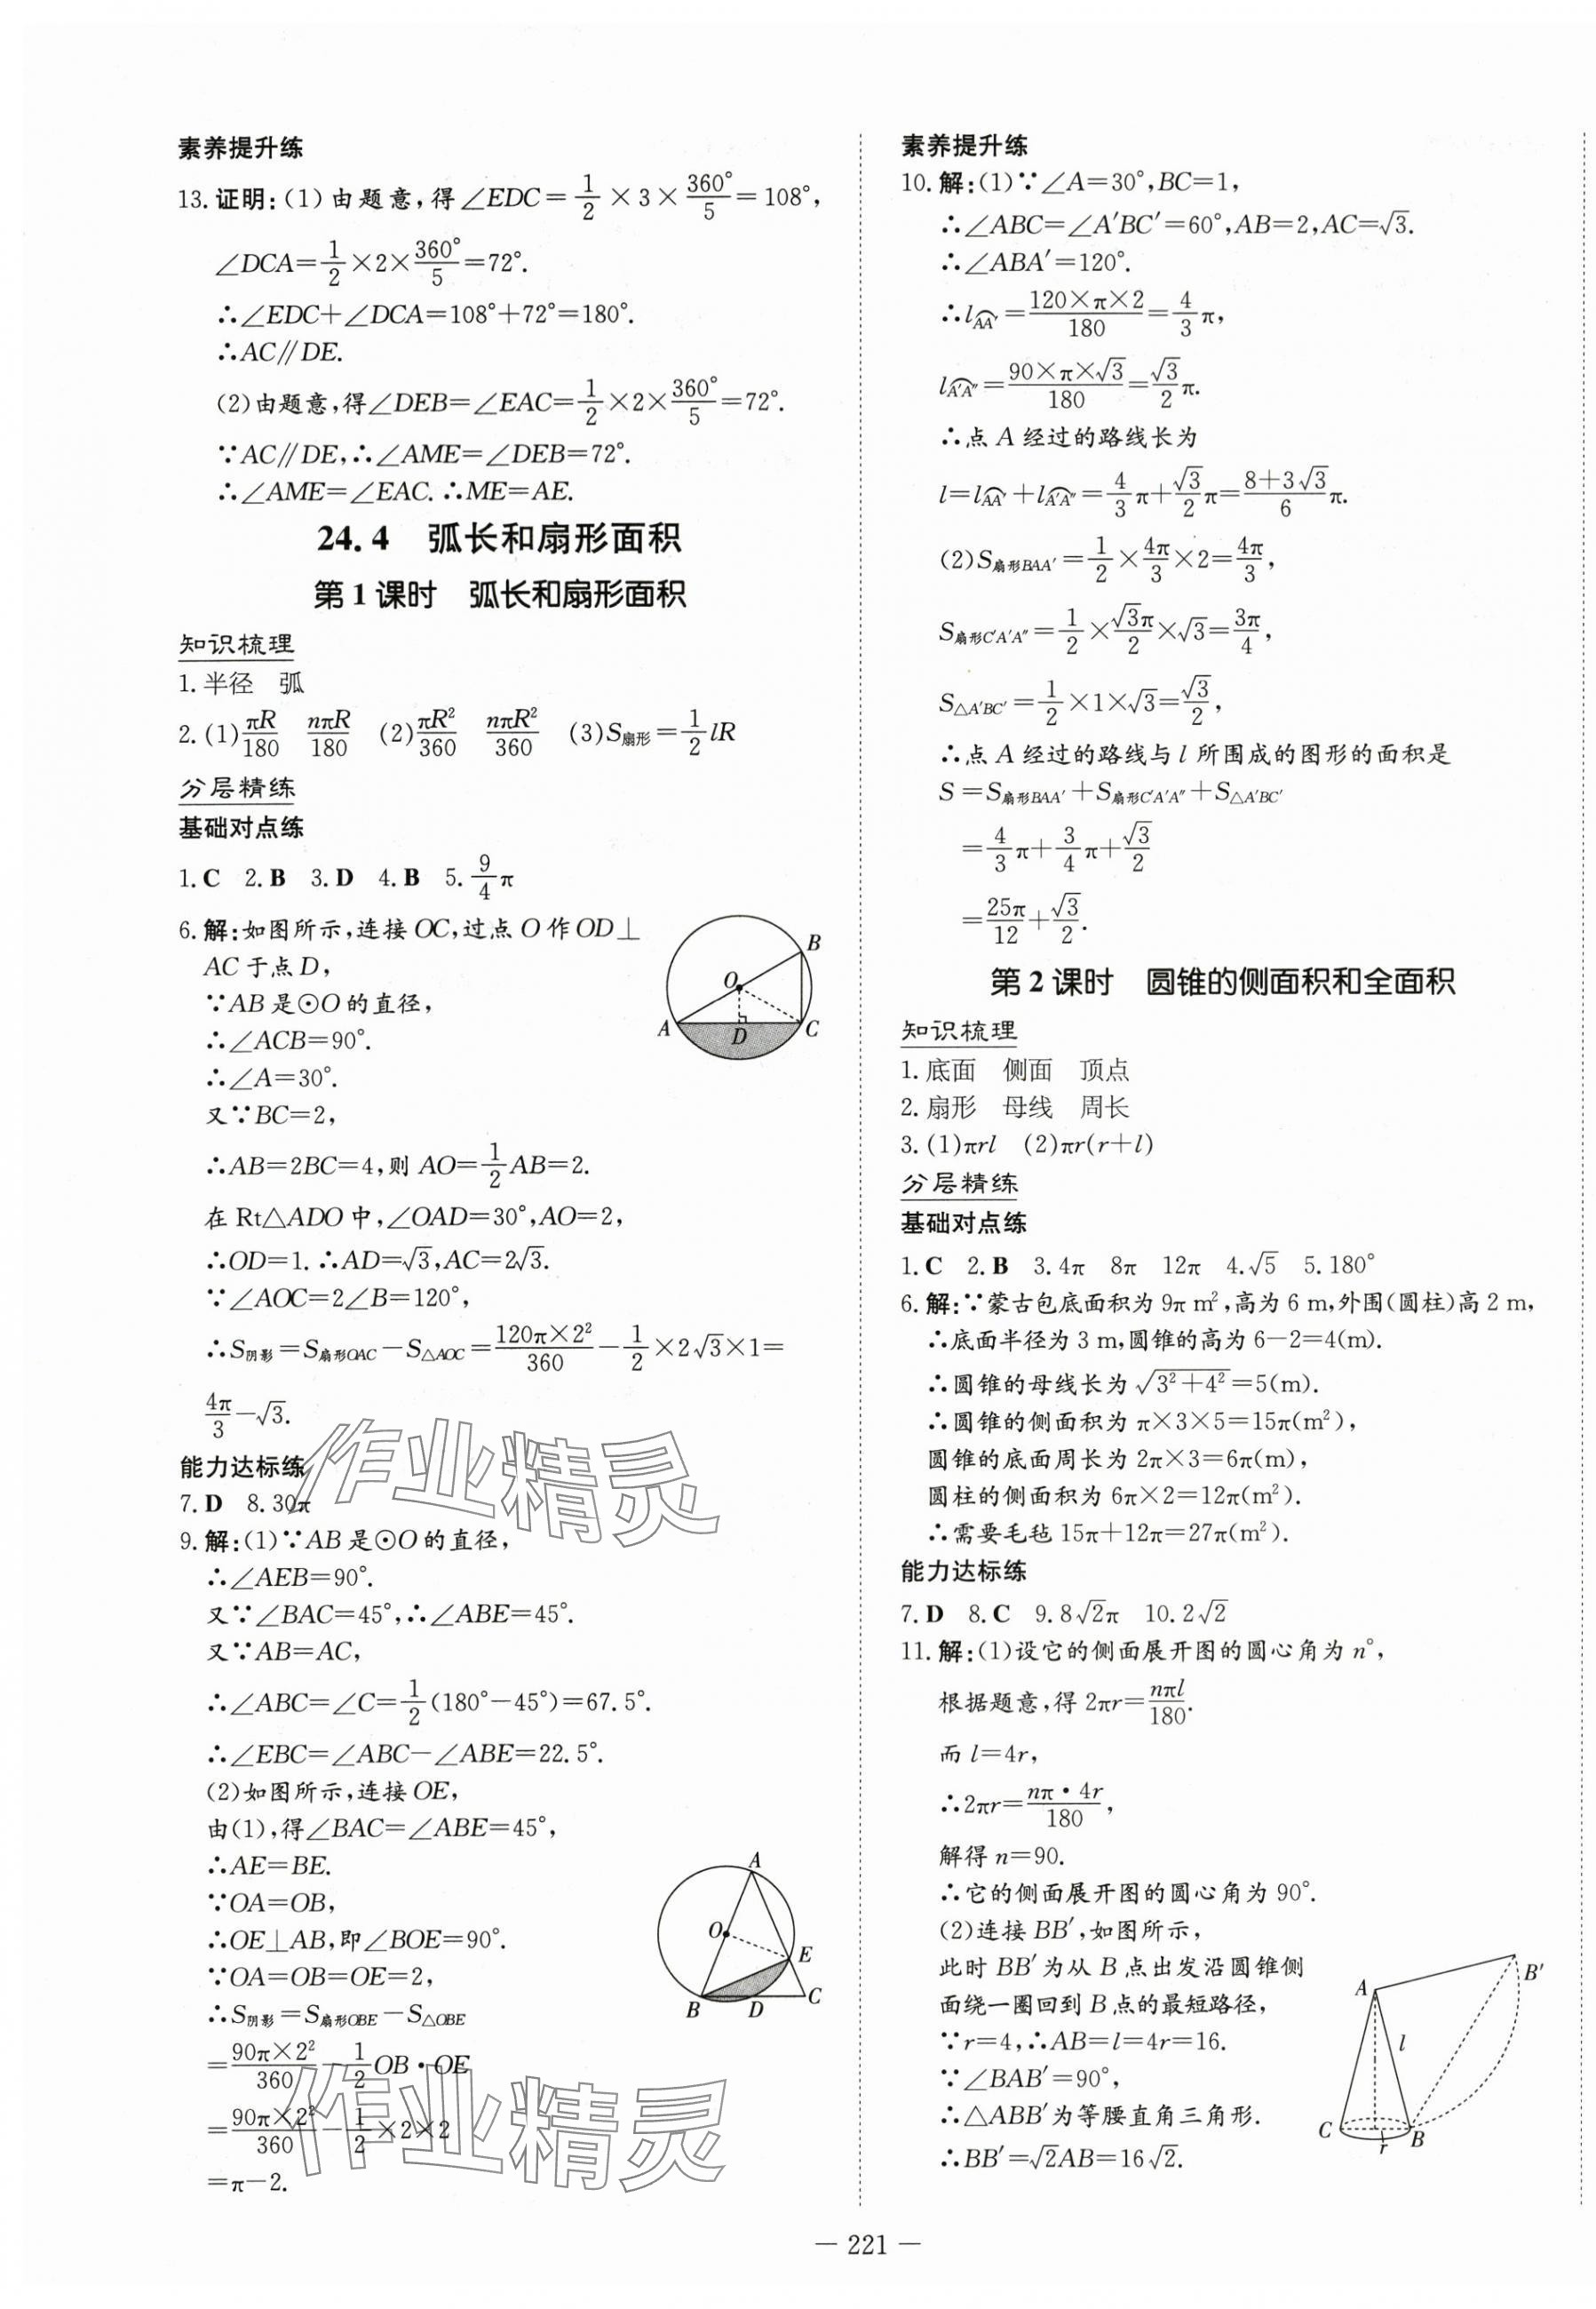 素养提升练
13.证明:(1)由题意,得∠EDC=1/2×3×360°/5=108°,
∠DCA=1/2×2×360°/5=72°.
∴∠EDC+∠DCA=108°+72°=180°.
∴AC∥DE.
(2)由题意,得∠DEB=∠EAC=1/2×2×360°/5=72°.
∵AC∥DE,∴∠AME=∠DEB=72°.
∴∠AME=∠EAC.∴ME=AE.
24.4 弧长和扇形面积
第1课时 弧长和扇形面积
知识梳理
1.半径 弧
2.(1)πR/180 nπR/180 (2)πR²/360 nπR²/360 (3)S扇形=1/2lR
分层精练
基础对点练
1.C 2.B 3.D 4.B 5.9/4π
6.解:如图所示,连接OC,过点O作OD⊥
AC于点D,
∵AB是⊙O的直径,
∴∠ACB=90°.
∴∠A=30°.
又∵BC=2,
∴AB=2BC=4,则AO=1/2AB=2.
在Rt△ADO中,∠OAD=30°,AO=2,
∴OD=1.∴AD=√3,AC=2√3.
∵∠AOC=2∠B=120°,
∴S阴影=S扇形OAC−S△AOC=120π×2²/360−1/2×2√3×1=
4π/3−√3.
B
O
A
D
C
能力达标练
7.D 8.30π
9.解:(1)∵AB是⊙O的直径,
∴∠AEB=90°.
又∵∠BAC=45°,∴∠ABE=45°.
又∵AB=AC,
∴∠ABC=∠C=1/2(180°−45°)=67.5°.
∴∠EBC=∠ABC−∠ABE=22.5°.
(2)如图所示,连接OE,
由(1),得∠BAC=∠ABE=45°,
∴AE=BE.
∵OA=OB,
∴OE⊥AB,即∠BOE=90°.
∵OA=OB=OE=2,
∴S阴影=S扇形OBE−S△OBE
=90π×2²/360−1/2OB·OE
=90π×2²/360−1/2×2×2
=π−2.
A
O
E
B
D
C
作业精灵
作业精灵
素养提升练
10.解:(1)∵∠A=30°,BC=1,
∴∠ABC=∠A′BC′=60°,AB=2,AC=√3.
∴∠ABA′=120°.
∴l⌒AA′=120×π×2/180=4/3π,
l⌒A′A″=90×π×√3/180=√3/2π.
∴点A经过的路线长为
l=l⌒AA′+l⌒A′A″=4/3π+√3/2π=8+3√3/6π.
(2)S扇形BAA′=1/2×4π/3×2=4π/3,
S扇形C′A′A″=1/2×√3π/2×√3=3π/4,
S△A′BC′=1/2×1×√3=√3/2,
∴点A经过的路线与l所围成的图形的面积是
S=S扇形BAA′+S扇形C′A′A″+S△A′BC′
=4/3π+3/4π+√3/2
=25π/12+√3/2.
第2课时 圆锥的侧面积和全面积
知识梳理
1.底面 侧面 顶点
2.扇形 母线 周长
3.(1)πrl (2)πr(r+l)
分层精练
基础对点练
1.C 2.B 3.4π 8π 12π 4.√5 5.180°
6.解:∵蒙古包底面积为9π m²,高为6 m,外围(圆柱)高2 m,
∴底面半径为3 m,圆锥的高为6−2=4(m).
∴圆锥的母线长为√3²+4²=5(m).
∴圆锥的侧面积为π×3×5=15π(m²),
圆锥的底面周长为2π×3=6π(m),
圆柱的侧面积为6π×2=12π(m²).
∴需要毛毡15π+12π=27π(m²).
能力达标练
7.D 8.C 9.8√2π 10.2√2
11.解:(1)设它的侧面展开图的圆心角为n°,
根据题意,得2πr=nπl/180.
而l=4r,
∴2πr=nπ·4r/180,
解得n=90.
∴它的侧面展开图的圆心角为90°.
(2)连接BB′,如图所示,
此时BB′为从B点出发沿圆锥侧
面绕一圈回到B点的最短路径,
∵r=4,∴AB=l=4r=16.
∵∠BAB′=90°,
∴△ABB′为等腰直角三角形.
∴BB′=√2AB=16√2.
A
B′
l
C
r
B
— 221 —